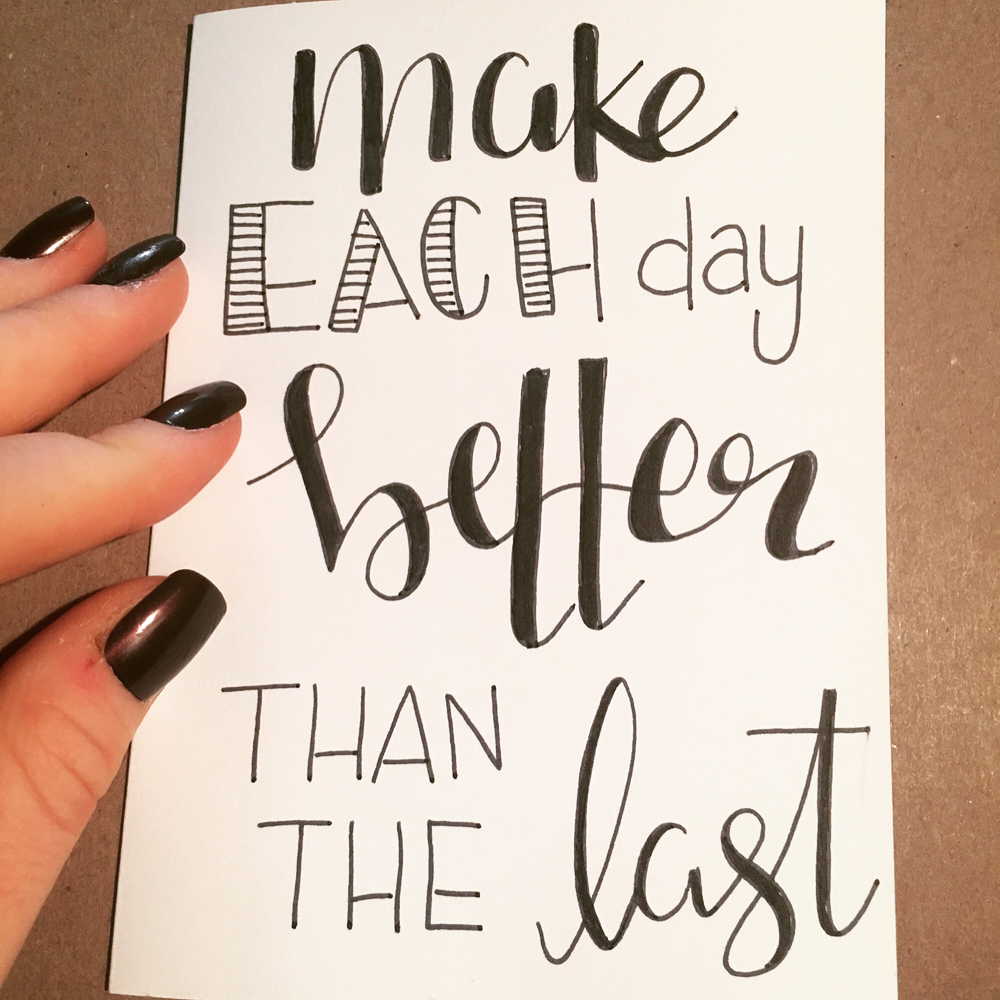 make
EACH day
better
THAN
THE last